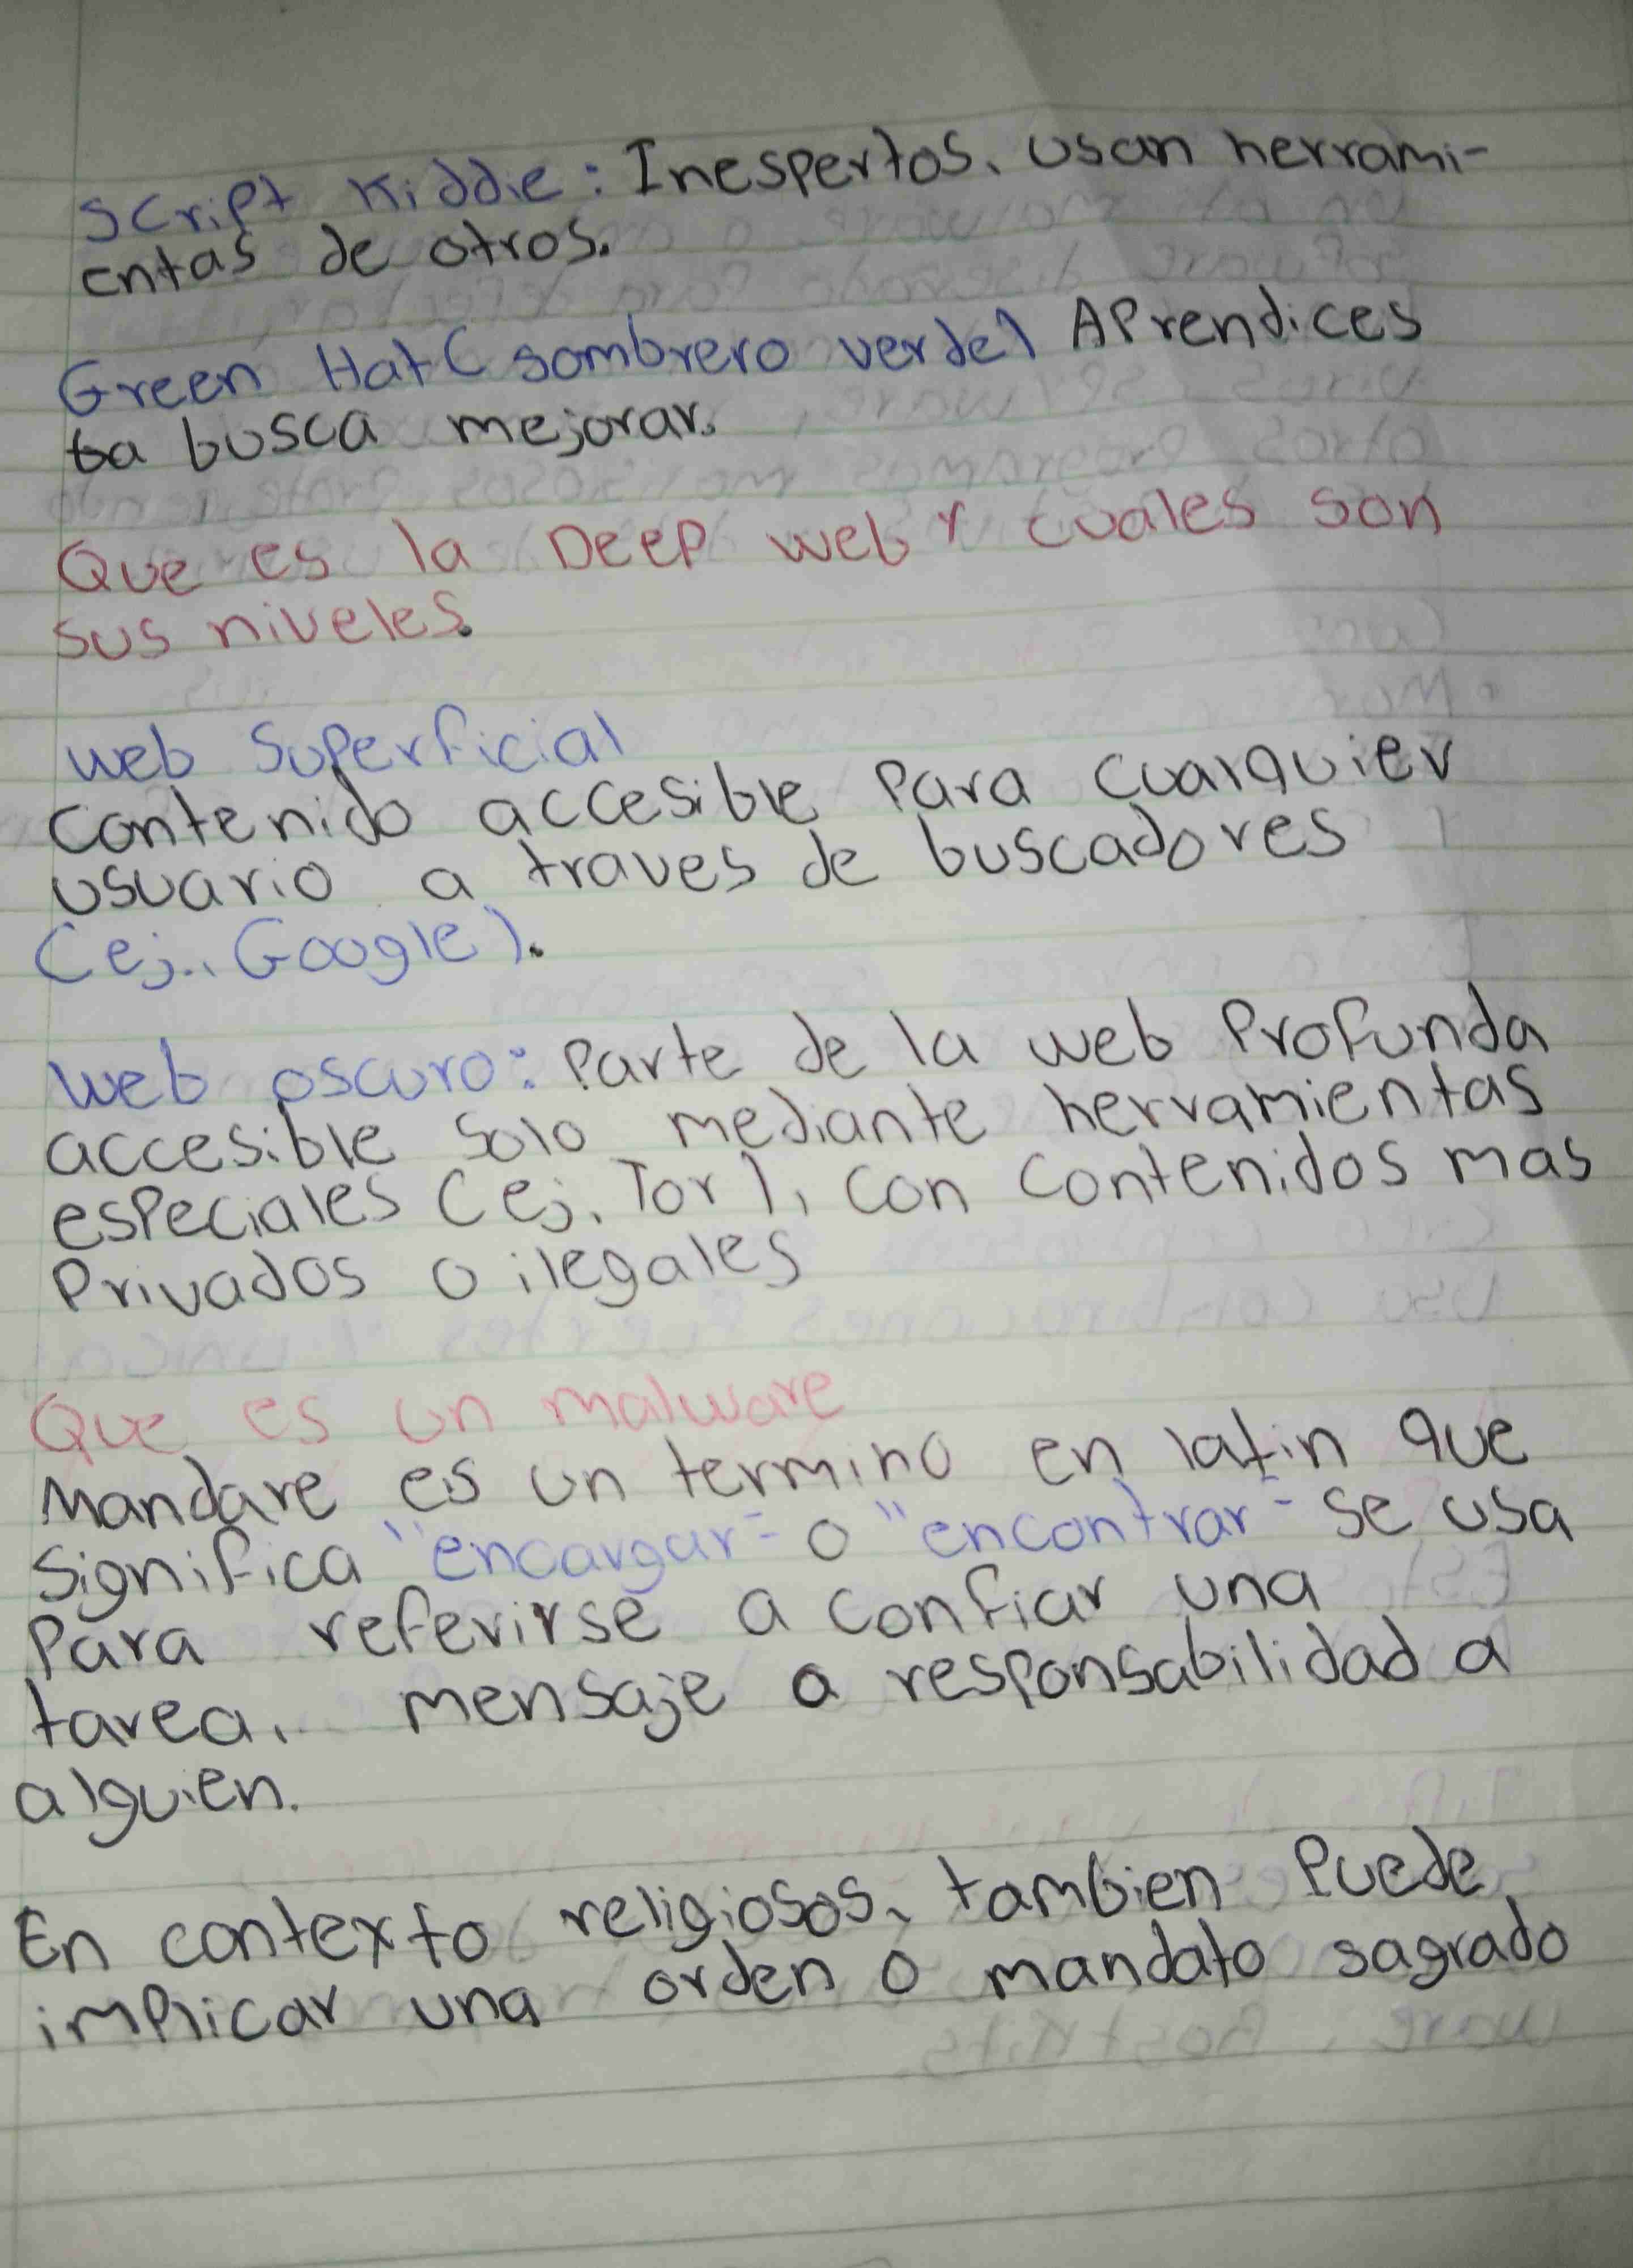 Script Kiddie: Inespertos, usan herrami-
entas de otros.
Green Hat (sombrero verde) Aprendices
busca mejorar.
Que es la Deep web y cuales son
sus niveles.
web superficial
contenido accesible para cualquier
usuario a traves de buscadores
(ej., Google).
web oscuro: parte de la web profunda
accesible solo mediante herramientas
especiales (ej. Tor), con contenidos mas
privados o ilegales
Que es un malware
Mandare es un termino en latin que
significa "encargar" o "encontrar" se usa
para referirse a confiar una
tarea, mensaje o responsabilidad a
alguien.
En contexto religiosos, tambien puede
implicar una orden o mandato sagrado